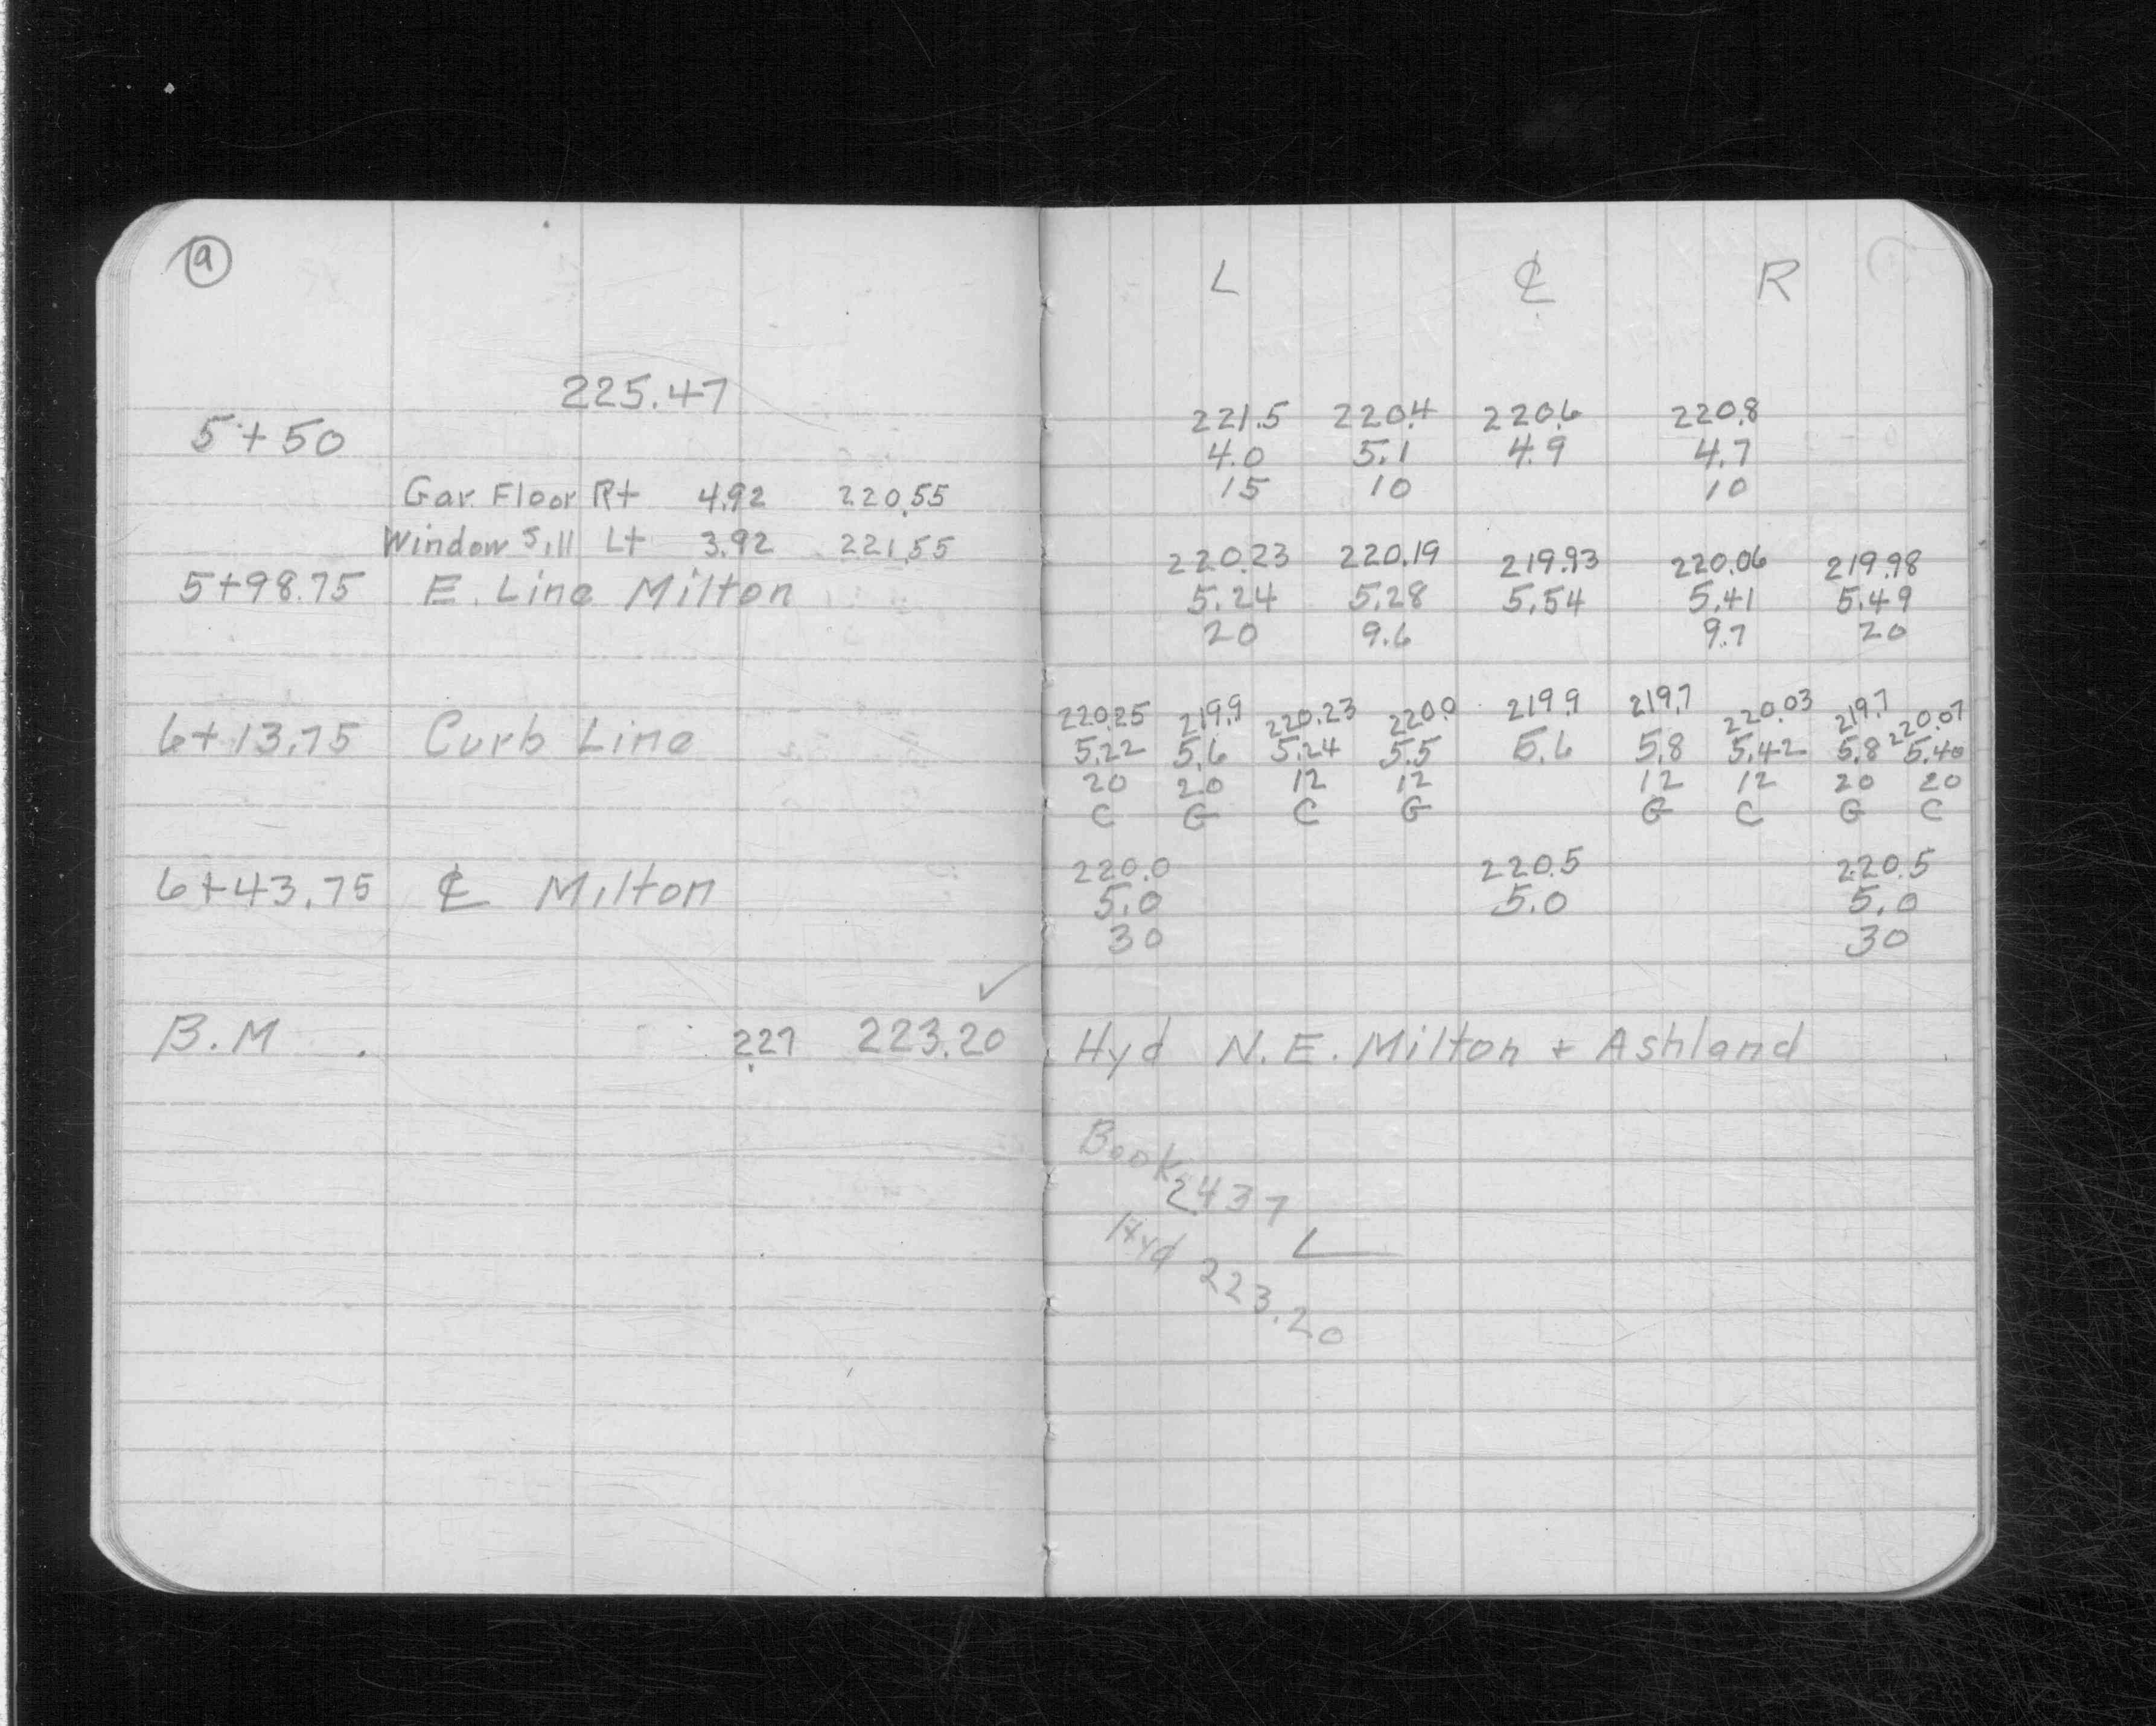 9
225.47
5+50
Gar. Floor Rt 4.92 220.55
Window Sill Lt 3.92 221.55
5+98.75 E. Line Milton
6+13.75 Curb Line
6+43.75 ℄ Milton
✓
B.M. 2.27 223.20
L ℄ R
221.5 220.4 220.6 220.8
4.0 5.1 4.9 4.7
15 10 10
220.23 220.19 219.93 220.06 219.98
5.24 5.28 5.54 5.41 5.49
20 9.6 9.7 20
220.25 219.9 220.23 220.0 219.9 219.7 220.03 219.7 220.07
5.22 5.6 5.24 5.5 5.6 5.8 5.42 5.8 5.40
20 20 12 12 12 12 20 20
C G C G G C G C
220.0 220.5 220.5
5.0 5.0 5.0
30 30
Hyd N.E. Milton + Ashland
Book
2437
Hyd
223.20